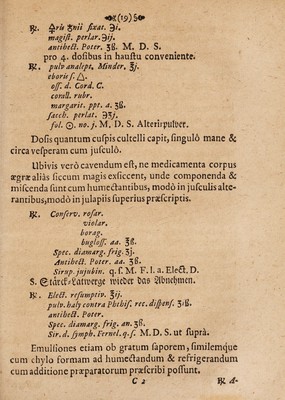 (19)
℞. ♀ris ℥nii fixat. ℈i.
magist. perlar. ℈ij.
antihect. Poter. ʒß. M. D. S.
pro 4. dosibus in haustu conveniente.
℞. pulv analept. Minder. ʒj.
eboris ſ. △.
oss. d. Cord. C.
corall. rubr.
margarit. ppt. a. ʒß.
sacch. perlat. ℈ʒj.
fol. ☉. no. j. M. D. S. Alterirpulver.
Dosis quantum cuspis cultelli capit, singulô mane &
circa vesperam cum jusculô.
Ubivis verò cavendum est, ne medicamenta corpus
ægræ aliàs siccum magis exsiccent, unde componenda &
miscenda sunt cum humectantibus, modò in jusculis alte-
rantibus, modò in julapiis superius præscriptis.
℞. Conserv. rosar.
violar.
borag.
bugloss. aa. ℥ß.
Spec. diamarg. frig. ʒj.
Antihect. Poter. aa. ʒß.
Sirup. jujubin. q. s. M. F. l. a. Elect. D.
S. Stärck-Latwerge wieder das Abnehmen.
℞. Elect. resumptiv. ℥ij.
pulv. haly contra Phthis. rec. dispens. ʒiß.
antihect. Poter.
Spec. diamarg. frig. an. ʒß.
Sir. d. symph. Fernel. q. s. M. D. S. ut suprà.
Emulsiones etiam ob gratum saporem, similemque
cum chylo formam ad humectandum & refrigerandum
cum additione præparatorum præscribi possunt.
C 2 ℞ A-